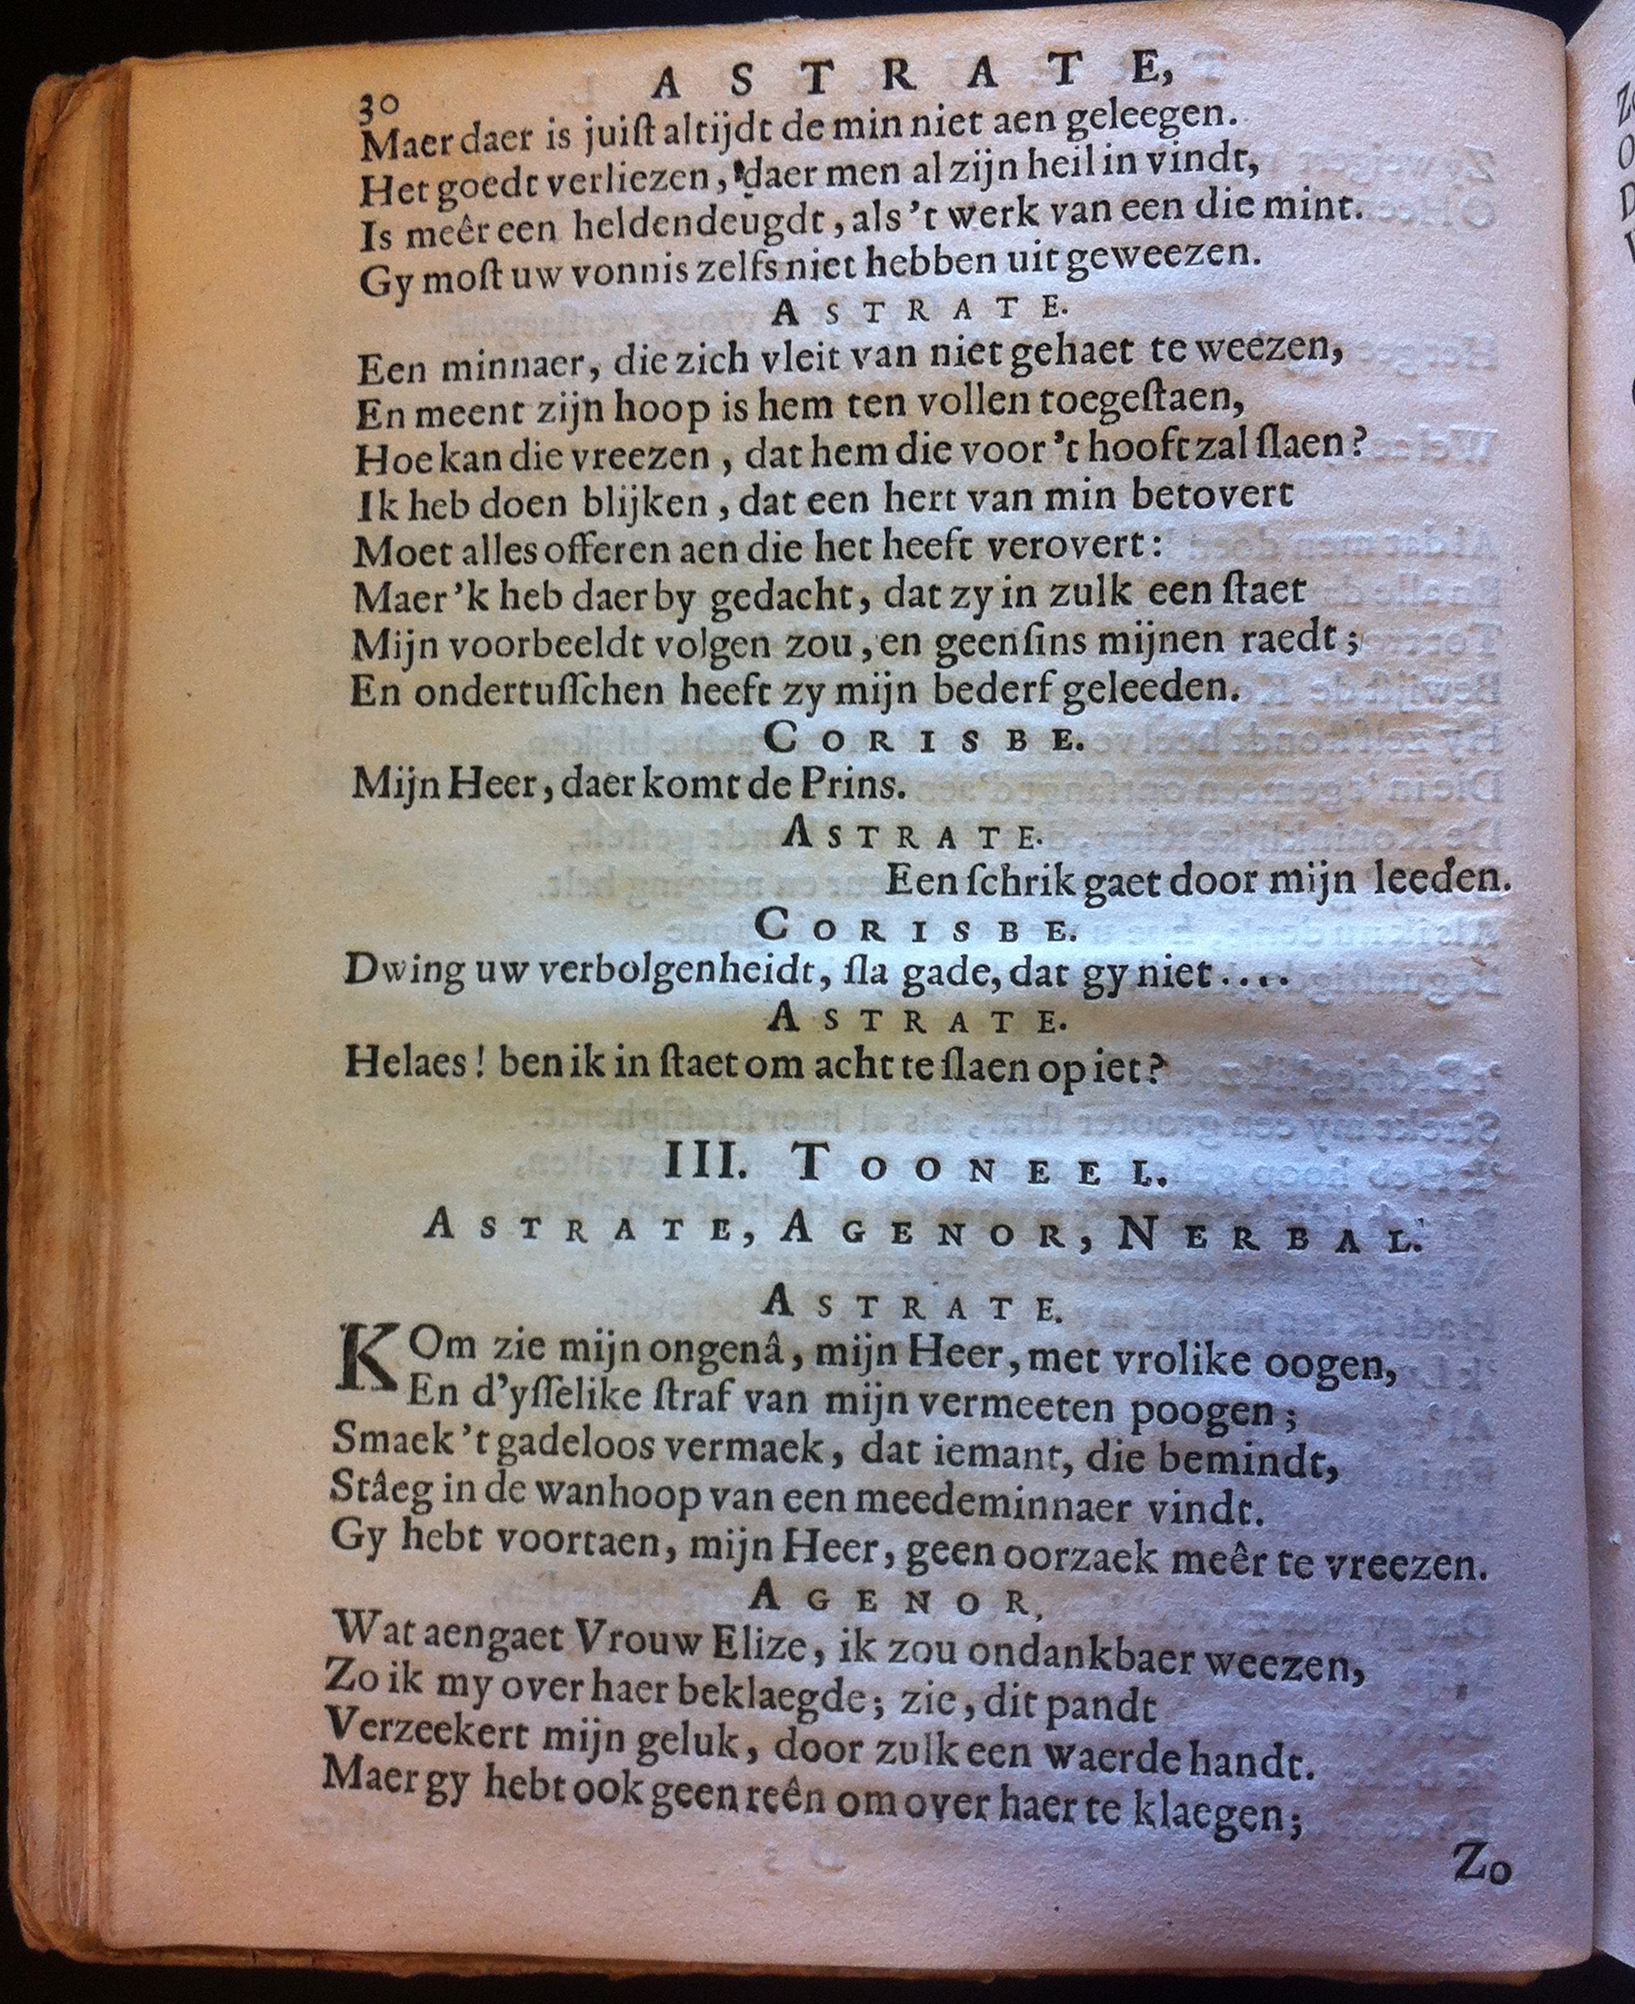 30 ASTRATE,
Maer daer is juiſt altijdt de min niet aen geleegen.
Het goedt verliezen, daer men al zijn heil in vindt,
Is meêr een heldendeugdt, als 't werk van een die mint.
Gy moſt uw vonnis zelfs niet hebben uit geweezen.
ASTRATE.
Een minnaer, die zich vleit van niet gehaet te weezen,
En meent zijn hoop is hem ten vollen toegeſtaen,
Hoe kan die vreezen, dat hem die voor 't hooft zal ſlaen?
Ik heb doen blijken, dat een hert van min betovert
Moet alles offeren aen die het heeft verovert:
Maer 'k heb daer by gedacht, dat zy in zulk een ſtaet
Mijn voorbeeldt volgen zou, en geenſins mijnen raedt;
En ondertuſſchen heeft zy mijn bederf geleeden.
CORISBE.
Mijn Heer, daer komt de Prins.
ASTRATE.
Een ſchrik gaet door mijn leeden.
CORISBE.
Dwing uw verbolgenheidt, ſla gade, dat gy niet....
ASTRATE.
Helaes! ben ik in ſtaet om acht te ſlaen op iet?
III. TOONEEL.
ASTRATE, AGENOR, NERBAL.
ASTRATE.
KOm zie mijn ongenâ, mijn Heer, met vrolike oogen,
En d'yſſelike ſtraf van mijn vermeeten poogen;
Smaek 't gadeloos vermaek, dat iemant, die bemindt,
Stâeg in de wanhoop van een meedeminnaer vindt.
Gy hebt voortaen, mijn Heer, geen oorzaek meêr te vreezen.
AGENOR,
Wat aengaet Vrouw Elize, ik zou ondankbaer weezen,
Zo ik my over haer beklaegde; zie, dit pandt
Verzeekert mijn geluk, door zulk een waerde handt.
Maer gy hebt ook geen reên om over haer te klaegen;
Zo